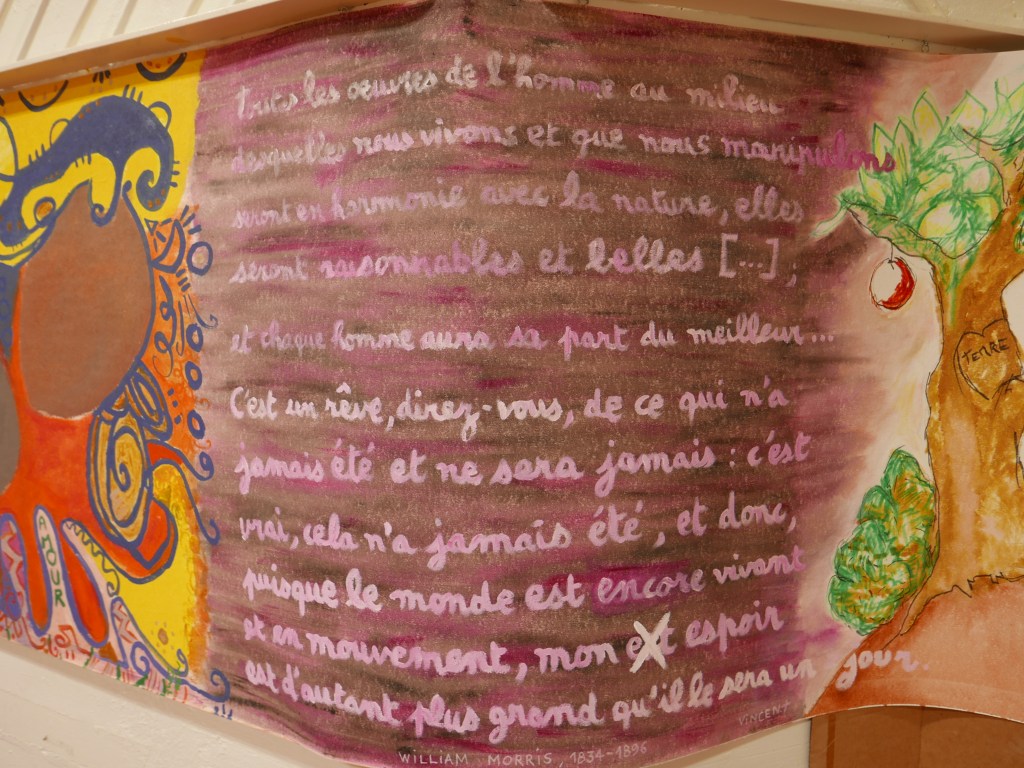 Tuts les œuvres de l'homme au milieu
desquelles nous vivons et que nous manipulons
seront en harmonie avec la nature, elles
seront raisonnables et belles [...],
et chaque homme aura sa part du meilleur...
C'est un rêve, direz-vous, de ce qui n'a
jamais été et ne sera jamais : c'est
vrai, cela n'a jamais été, et donc,
puisque le monde est encore vivant
et en mouvement, mon et espoir
est d'autant plus grand qu'il le sera un jour.
VINCENT
WILLIAM MORRIS, 1834-1896
AMOUR
TERRE